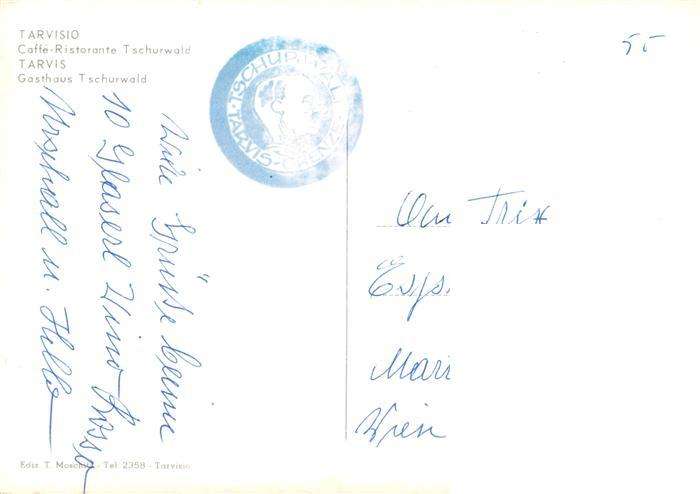 TARVISIO
Caffè-Ristorante Tschurwald
TARVIS
Gasthaus Tschurwald
55
TSCHURWALD
TARVIS
Viele Grüße beim
10 Glaserl Vino Rosso
u. Hella
Trix
Mari
Wien
Ediz. T. Moschitz - Tel. 2358 - Tarvisio